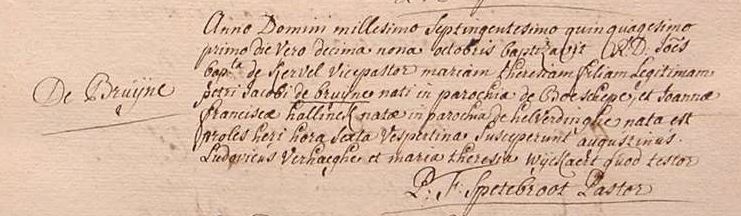 Anno Domini millesimo Septingentesimo quinquagesimo
primo die vero decima nona octobris baptizavit (R.D. Joës
bapta de Kervel Vicepastor mariam theresiam filiam Legitimam
De Bruÿne
petri Jacobi de bruÿne nati in parochia de Boeschepe, et Joannæ
franciscæ hallinck natæ in parochia de helverdinghe nata est
proles heri hora sexta Vespertina Susceperunt augustinus
Ludovicus Verhaeghe et maria theresia Wÿckaert quod testor
P: F: Spetebroot Pastor